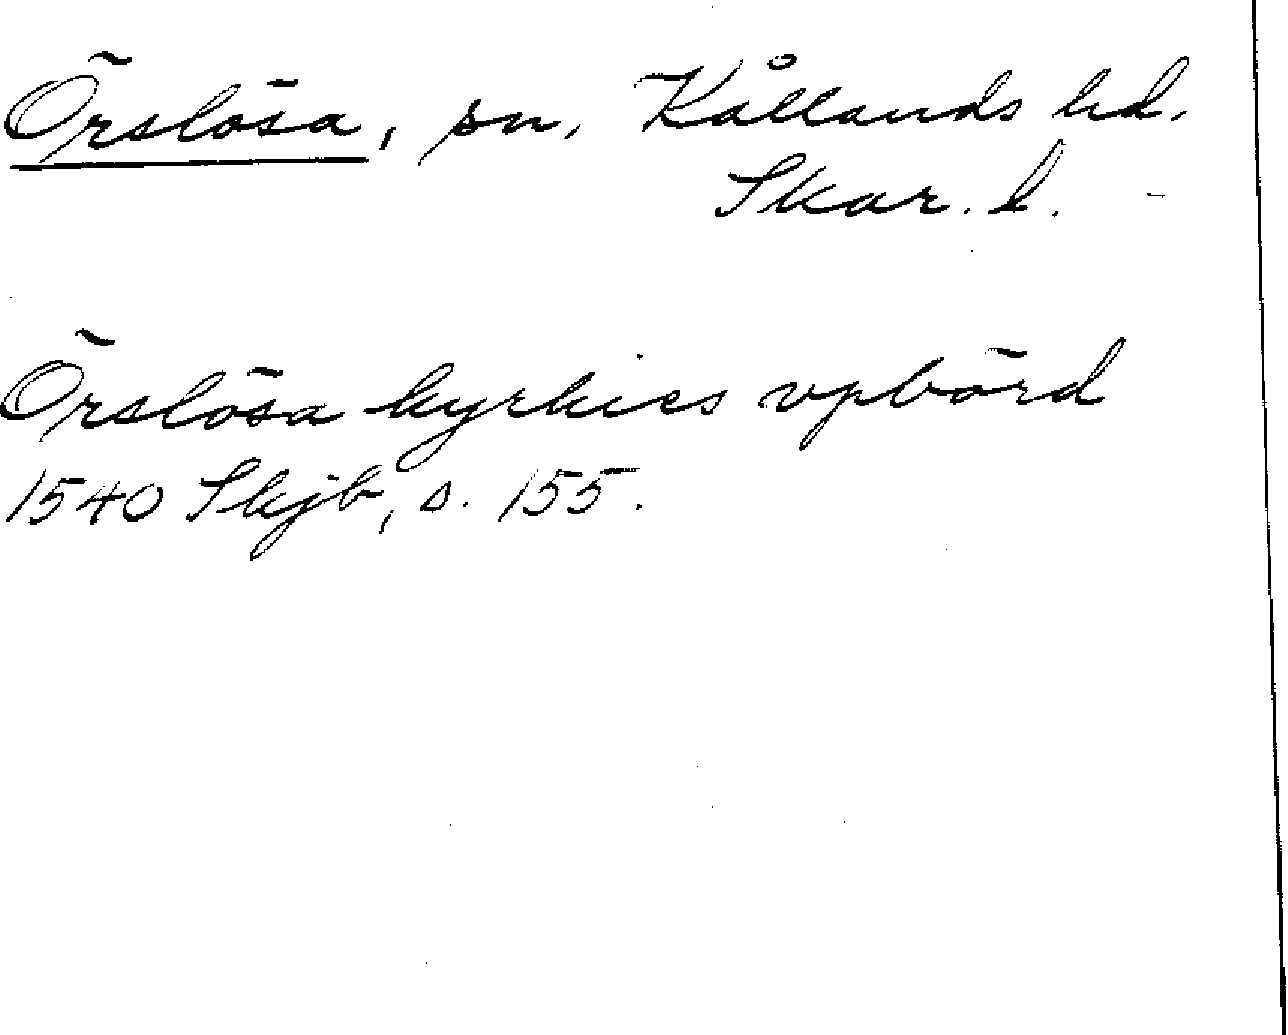 Örslösa, sn, Kållands hd.
Skar. l.
Örslösa kyrkies vpbörd
1540 Skjb, s. 155.